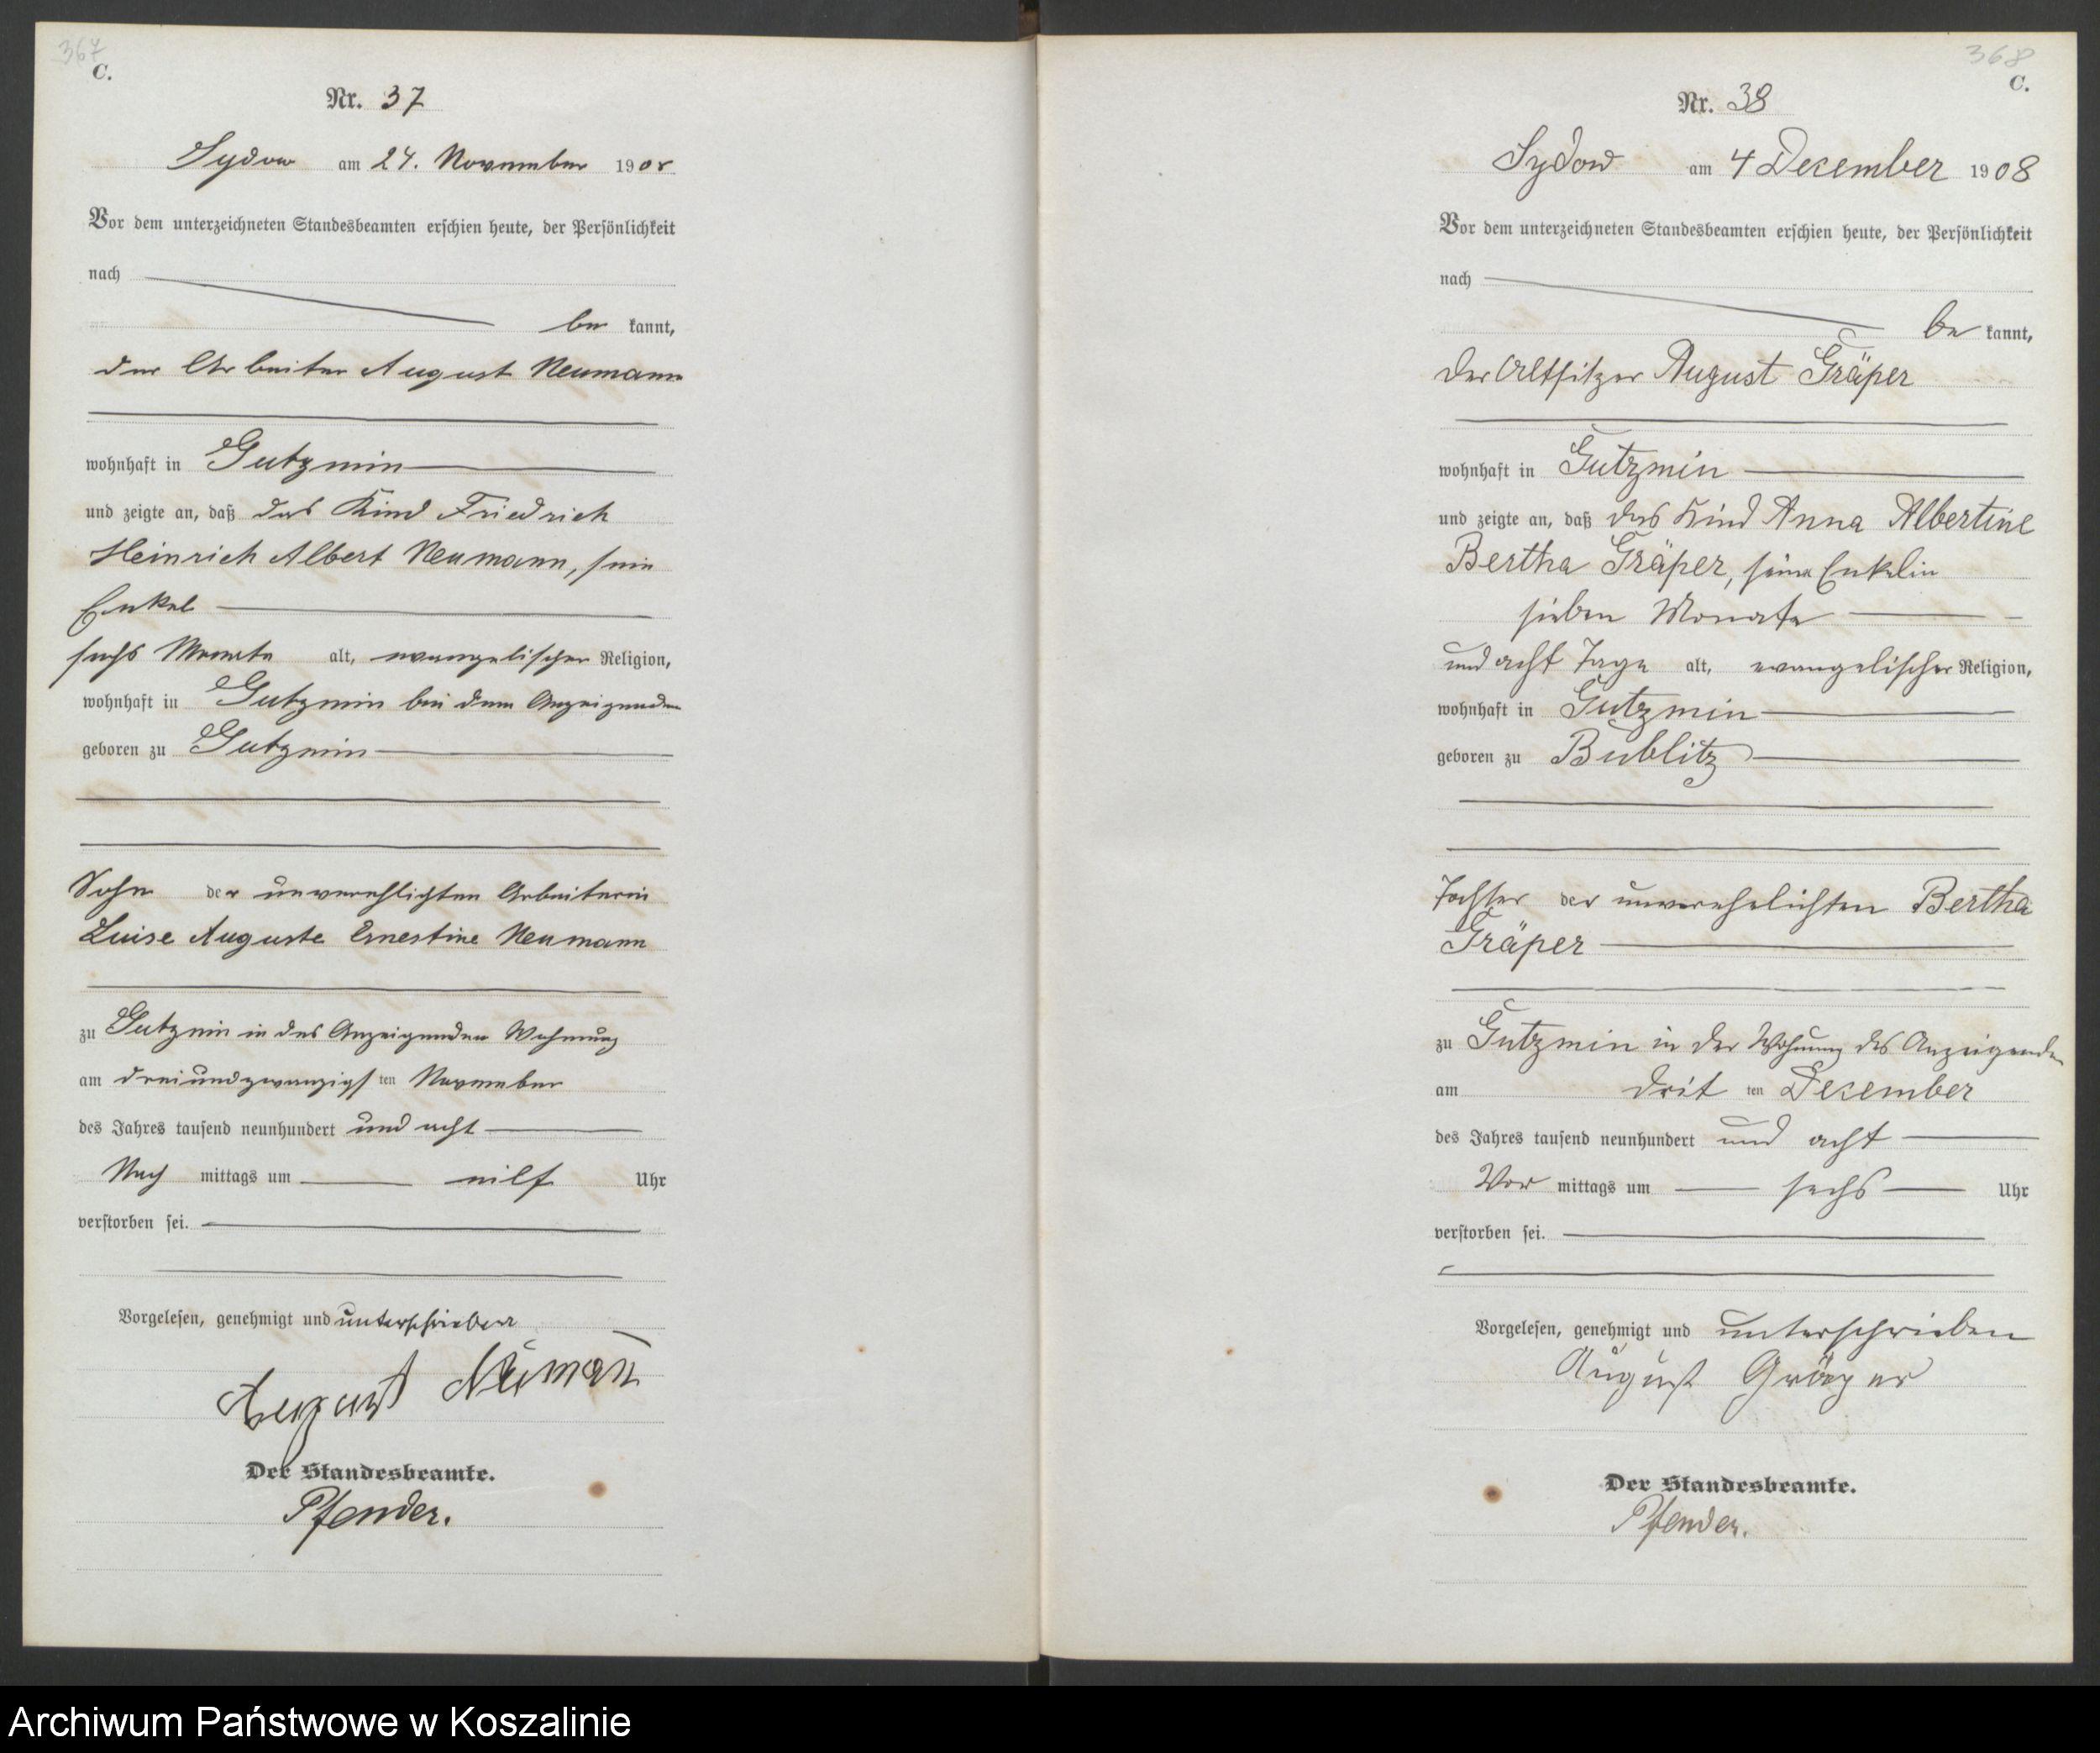 367
C.
Nr. 37
Sydow am 24. November 1908
Vor dem unterzeichneten Standesbeamten erschien heute, der Persönlichkeit
nach
be kannt,
der Arbeiter August Neumann
wohnhaft in Gutzmin
und zeigte an, daß das Kind Friedrich
Heinrich Albert Neumann, sein
Enkel
sechs Monate alt, evangelischer Religion,
wohnhaft in Gutzmin bei dem Anzeigenden
geboren zu Gutzmin
Sohn der unverehlichten Arbeiterin
Luise Auguste Ernestine Neumann
zu Gutzmin in des Anzeigenden Wohnung
am dreiundzwanzigs ten November
des Jahres tausend neunhundert und acht
Nach mittags um eilf Uhr
verstorben sei.
Vorgelesen, genehmigt und unterschrieben
August Neuman̄
Der Standesbeamte.
Pfender.
368
C.
Nr. 38
Sydow am 4 Dezember 1908
Vor dem unterzeichneten Standesbeamten erschien heute, der Persönlichkeit
nach
be kannt,
der Altsitzer August Gräper
wohnhaft in Gutzmin
und zeigte an, daß das Kind Anna Albertine
Bertha Gräper, seine Enkelin
sieben Monate
und acht Tage alt, evangelischer Religion,
wohnhaft in Gutzmin
geboren zu Bublitz
Tochter der unverehelichten Bertha
Gräper
zu Gutzmin in der Wohnung des Anzeigenden
am drit ten Dezember
des Jahres tausend neunhundert und acht
Vor mittags um sechs Uhr
verstorben sei.
Vorgelesen, genehmigt und unterschrieben
August Gräper
Der Standesbeamte.
Pfender.
Archiwum Państwowe w Koszalinie